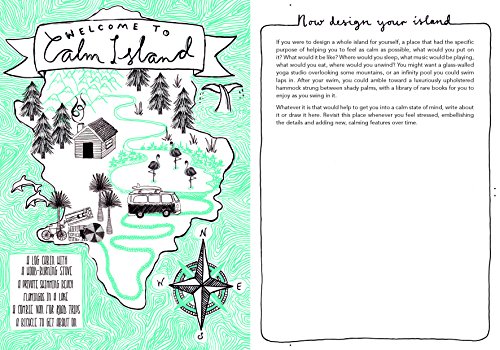 WELCOME TO
Calm Island
A LOG CABIN WITH
A WOOD-BURNING STOVE
A PRIVATE SWIMMING BEACH
FLAMINGOS IN A LAKE
A COMBIE VAN FOR ROAD TRIPS
A BICYCLE TO GET ABOUT ON.
N
W
E
S
Now design your island
If you were to design a whole island for yourself, a place that had the specific
purpose of helping you to feel as calm as possible, what would you put on
it? What would it be like? Where would you sleep, what music would be playing,
what would you eat, where would you unwind? You might want a glass-walled
yoga studio overlooking some mountains, or an infinity pool you could swim
laps in. After your swim, you could amble toward a luxuriously upholstered
hammock strung between shady palms, with a library of rare books for you to
enjoy as you swing in it.
Whatever it is that would help to get you into a calm state of mind, write about
it or draw it here. Revisit this place whenever you feel stressed, embellishing
the details and adding new, calming features over time.